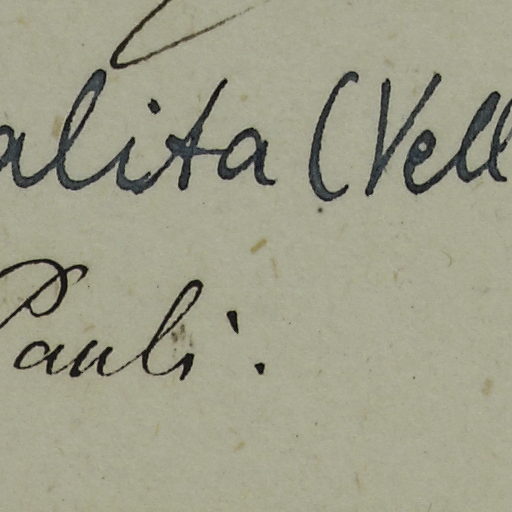 alita (Vell
Pauli.